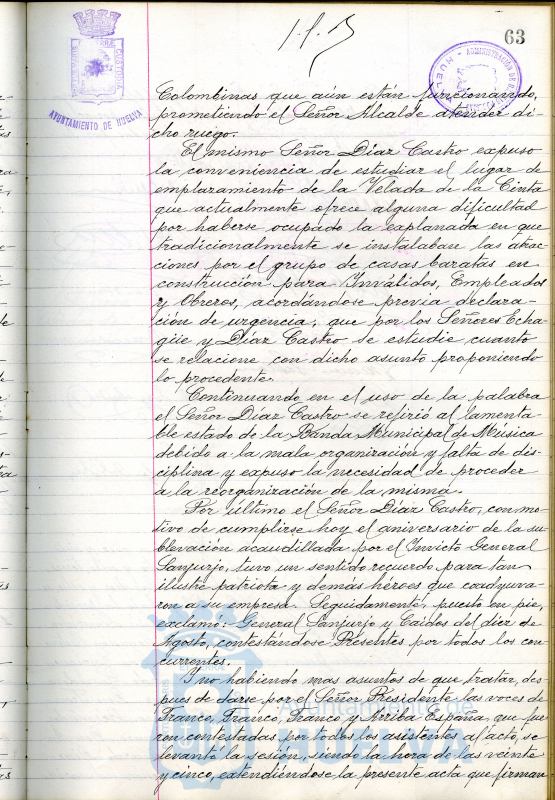 63
AYUNTAMIENTO DE HUELVA
Colombinas que aún están funcionando,
prometiendo el Señor Alcalde atender di-
cho ruego.
El mismo Señor Díaz Castro expuso
la conveniencia de estudiar el lugar de
emplazamiento de la Velada de la Cinta
que actualmente ofrece alguna dificultad
por haberse ocupado la explanada en que
tradicionalmente se instalaban las atrac
ciones por el grupo de casas baratas en
construcción para Inválidos, Empleados
y Obreros, acordándose previa declara-
ción de urgencia, que por los Señores Echa-
güe y Díaz Castro se estudie cuanto
se relacione con dicho asunto proponiendo
lo procedente.
Continuando en el uso de la palabra
el Señor Díaz Castro se refirió al lamenta-
ble estado de la Banda Municipal de Música
debido a la mala organización y falta de dis-
ciplina y expuso la necesidad de proceder
a la reorganización de la misma.
Por último el Señor Díaz Castro, con mo-
tivo de cumplirse hoy el aniversario de la su-
blevación acaudillada por el Invicto General
Sanjurjo, tuvo un sentido recuerdo para tan
ilustre patriota y demás héroes que coadyuva-
ron a su empresa. Seguidamente, puesto en pie,
exclamó: General Sanjurjo y Caidos del diez de
Agosto, contestándose Presentes por todos los con-
currentes.
Y no habiendo mas asuntos de que tratar, des-
pues de darse por el Señor Presidente las voces de
Franco, Franco, Franco y Arriba España, que fue
ron contestadas por todos los asistentes al acto, se
levantó la sesión, siendo la hora de las veinte
y cinco, extendiéndose la presente acta que firman